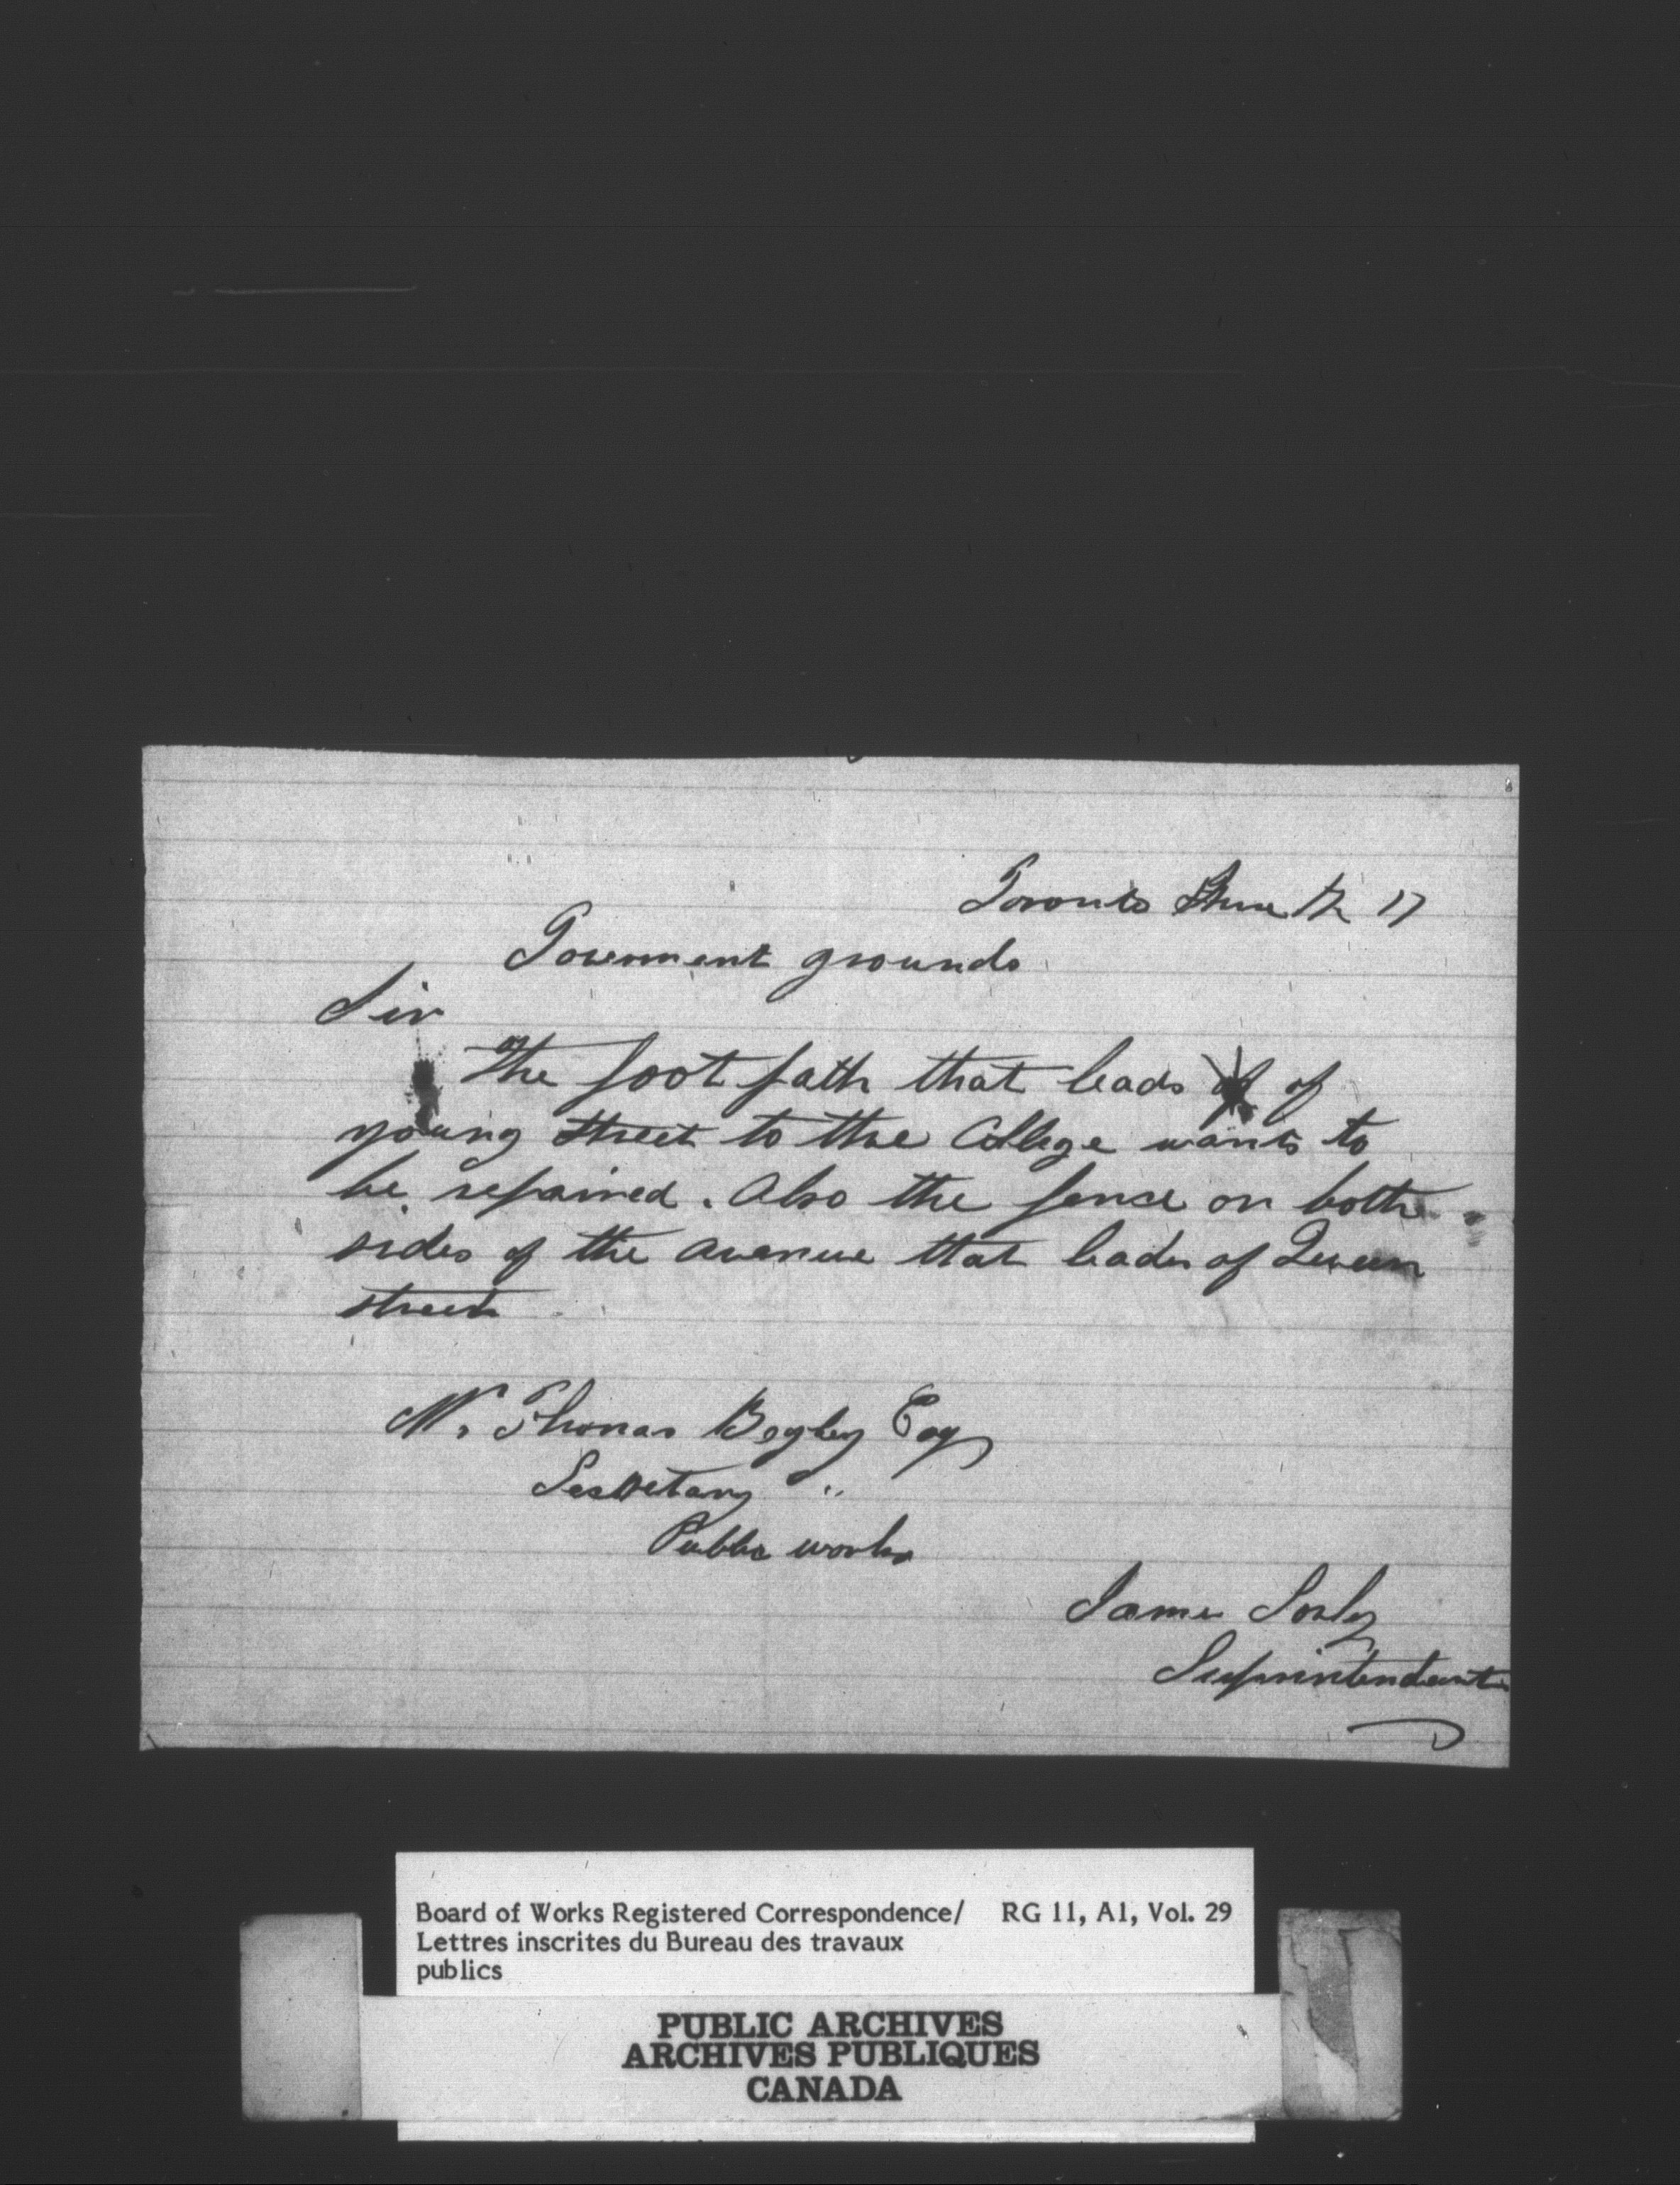 Toronto June th 17
Goverment grounds
Sir
The foot path that leads of
young street to the College wants to
be repaired. Also the fence on both
sides of the avenue that leades of Queen
street
Mr Thomas Begley Esq
Secretary "
Public works
James
Suprintendant
Board of Works Registered Correspondence/ RG 11, A1, Vol. 29
Lettres inscrites du Bureau des travaux
publics
PUBLIC ARCHIVES
ARCHIVES PUBLIQUES
CANADA